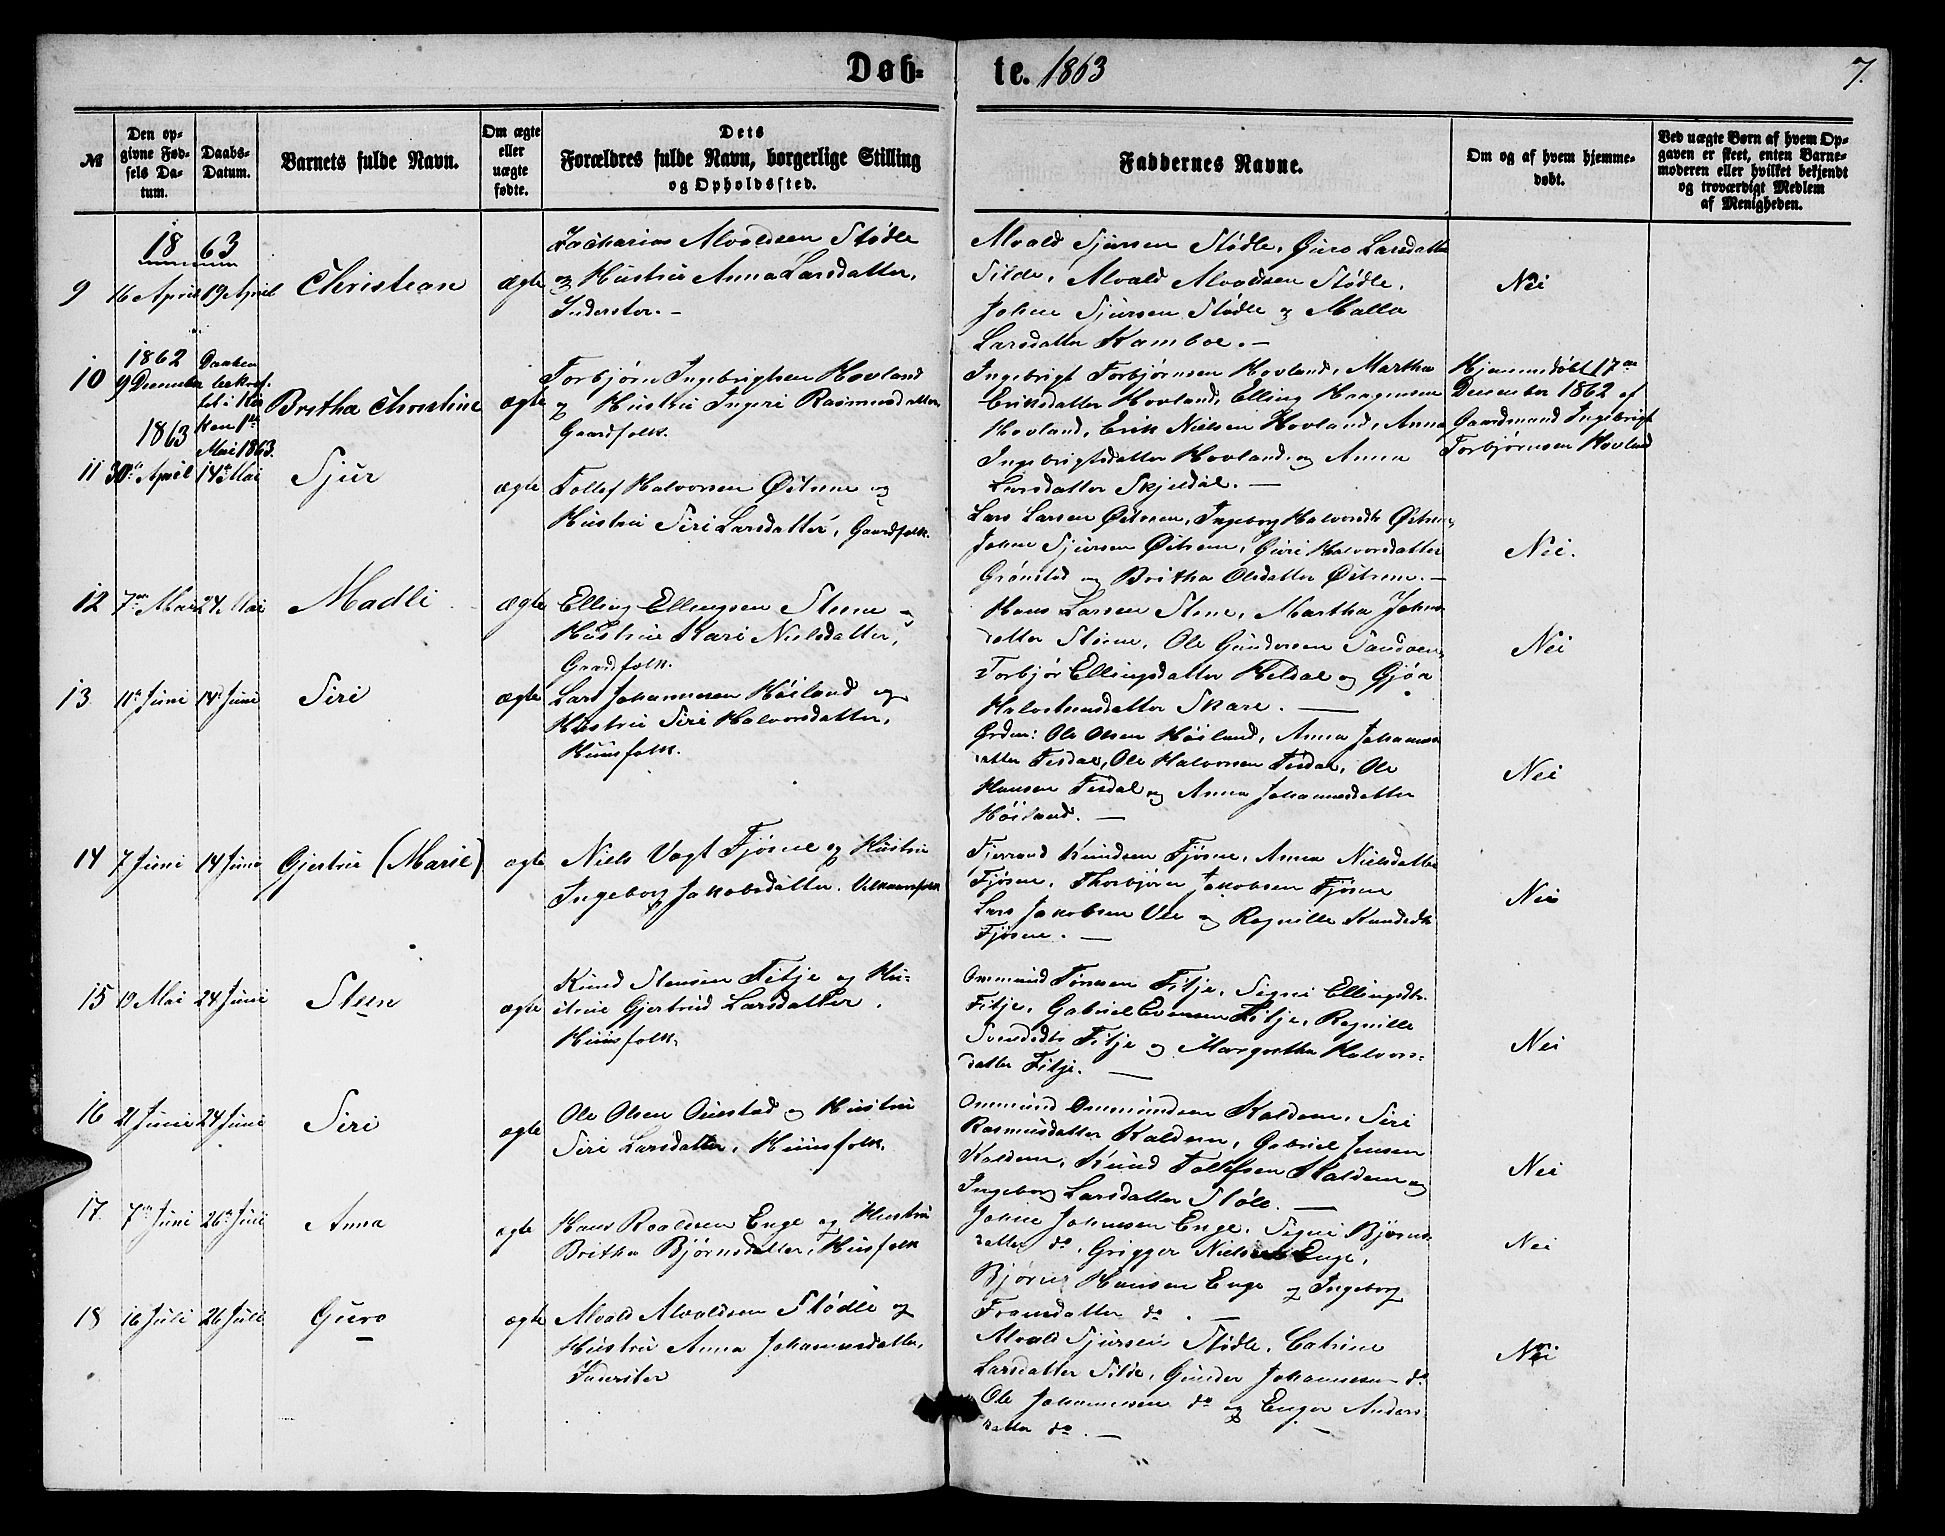 Døb-
te. 1863
7.
№
Den op-
givne Fød-
sels Da-
tum.
Daabs-
Datum.
Barnets fulde Navn.
Om ægte
eller
uægte
fødte.
Dets
Forældres fulde Navn, borgerlige Stilling
og Opholdssted.
Faddernes Navne.
Om og af hvem hjemme-
døbt.
Ved uægte Børn af hvem Op-
gaven er skeet, enten Barne-
moderen eller hvilket bekjendt
og troværdigt Medlem
af Menigheden.
1863
9
16 April
19 April
Christian
ægte
Zacharias Alvaldsen Stødle
og Hustru Anna Larsdatter,
Inderster. -
Alvald Sjursen Stødle, Guro Larsdatter
Silde, Alvald Alvaldsen Stødle,
Johne Sjursen Stødle og Malla
Larsdatter Kamboe. -
Nei
10
1862
9 December
Daaben
bekræf-
tet i Kir
ken 1ste
Mai 1863.
Britha Christine
ægte
Torbjørn Ingebrigtsen Hovland
og Hustru Ingeri Rasmusdatter,
Gaardfolk.
Ingebrigt Torbjørnsen Hovland, Martha
Eriksdatter Hovland, Elling Haagensen
Hovland, Erik Nielsen Hovland, Anna
Ingebrigtsdatter Hovland og Anna
Larsdatter Skjeldal. -
Hjemmedøbt 17de
December 1862 af
Gaardmand Ingebrigt
Torbjørnsen Hovland
1863
11
30te April
14de Mai
Sjur
ægte
Tollef Halvorsen Østrem og
Hustru Siri Larsdatter, Gaardfolk.
Lars Larsen Østrem, Ingeborg Halvorsdtr Østrem,
Johne Sjursen Østrem, Guri Halvorsdatter
Grønstad og Britha Olsdatter Østrem. -
Nei.
12
7de Mai
24 Mai
Madli
Ægte
Elling Ellingsen Stene og
Hustrue Kari Nielsdatter,
Gaardfolk.
Hans Larsen Stene, Martha Johns
datter Stene, Ole Gundersen Sandven,
Torbjør Ellingsdatter Heldal og Gjøa
Halvorsdatter Skare. -
Nei
13
11te Juni
14 Juni
Siri
ægte
Lars Johannesen Høiland og
Hustrue Siri Halvorsdatter,
Huusfolk.
Ole Olsen Høiland, Anna Johannes
datter Tesdal, Ole Halvorsen Tesdal, Ole
Hansen Tesdal og Anna Johannesdatter
Høiland. -
Nei
14
7 Juni
14 Juni
Gjertrue (Marie)
ægte
Niels Vagt Fjøsne og Hustrue
Ingeborg Jakobsdatter,
Knudsen Fjøsne, Anna Nielsdatter
Fjøsne, Thorbjørn Jakobsen Fjøsne
Lars Jakobsen Vee og Ragnille Knudsdtr
Fjøsne. -
Nei
15
19 Mai
24 Juni
Steen
ægte
Knud Stensen Fitje og Hu-
strue Gjertrud Larsdatter,
Huusfolk.
Ommund Tønnesen Fitje, Signi Ellingsdtr
Fitje, Gabriel Evensen Fitje, Ragnille
Svendsdtr Fitje og Margretha Halvors-
datter Fitje. -
Nei
16
21 Juni
24 Juni
Siri
ægte
Ole Olsen Øiestad og Hustru
Siri Larsdatter, Huusfolk.
Ommund Ommundsen Kaldem, Siri
Rasmusdatter Kaldem, Gabriel Jensen
Kaldem, Knud Tollefsen Kaldem og
Ingeborg Larsdatter Støle. -
Nei
17.
7de Juni
26de Juli
Anna
ægte
Hans Roaldsen Enge og Hustru
Britha Bjørnsdatter, Husfolk
Johne Johnsen Enge, Signi Bjørns
datter do, Grigger Nielsen Enge,
Bjørne Hansen Enge og Ingeborg
Fransdatter do. -
Nei
18
16 Juli
26 Juli
Guro
ægte
Alvald Alvaldsen Stødle og
Hustru Anna Johannesdatter,
Inderster
Alvald Sjursen Stødle, Catrine
Larsdatter Silde, Gunder Johannesen do
Ole Johannesen do og Enger Anders
datter do. -
Nei